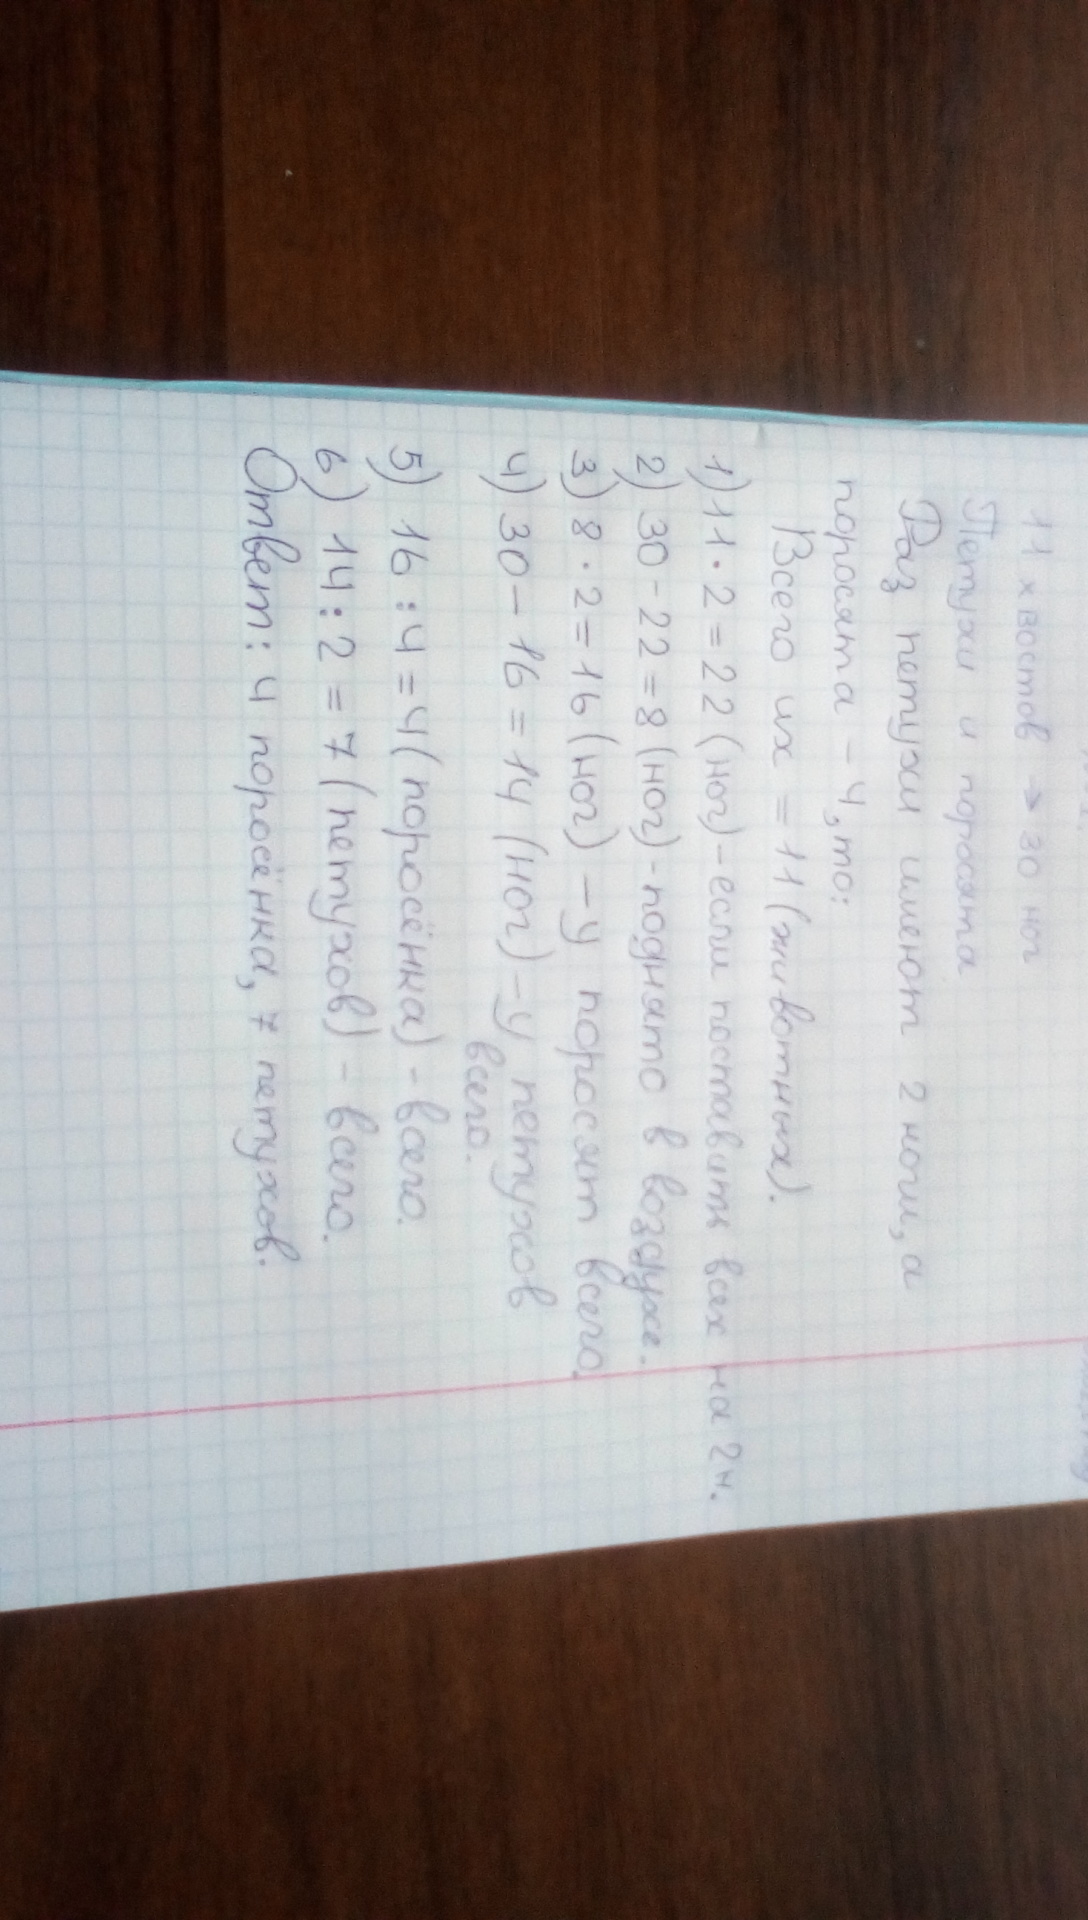 11 хвостов → 30 ног
Петухи и поросята
Раз петухи имеют 2 ноги, а
поросята - 4, то:
Всего их = 11 (животных).
1) 11 · 2 = 22 (ног) - если поставить всех на 2 н.
2) 30 - 22 = 8 (ног) - поднято в воздухе.
3) 8 · 2 = 16 (ног) - у поросят всего.
4) 30 - 16 = 14 (ног) - у петухов
всего.
5) 16 : 4 = 4 (поросёнка) - всего.
6) 14 : 2 = 7 (петухов) - всего.
Ответ: 4 поросёнка, 7 петухов.